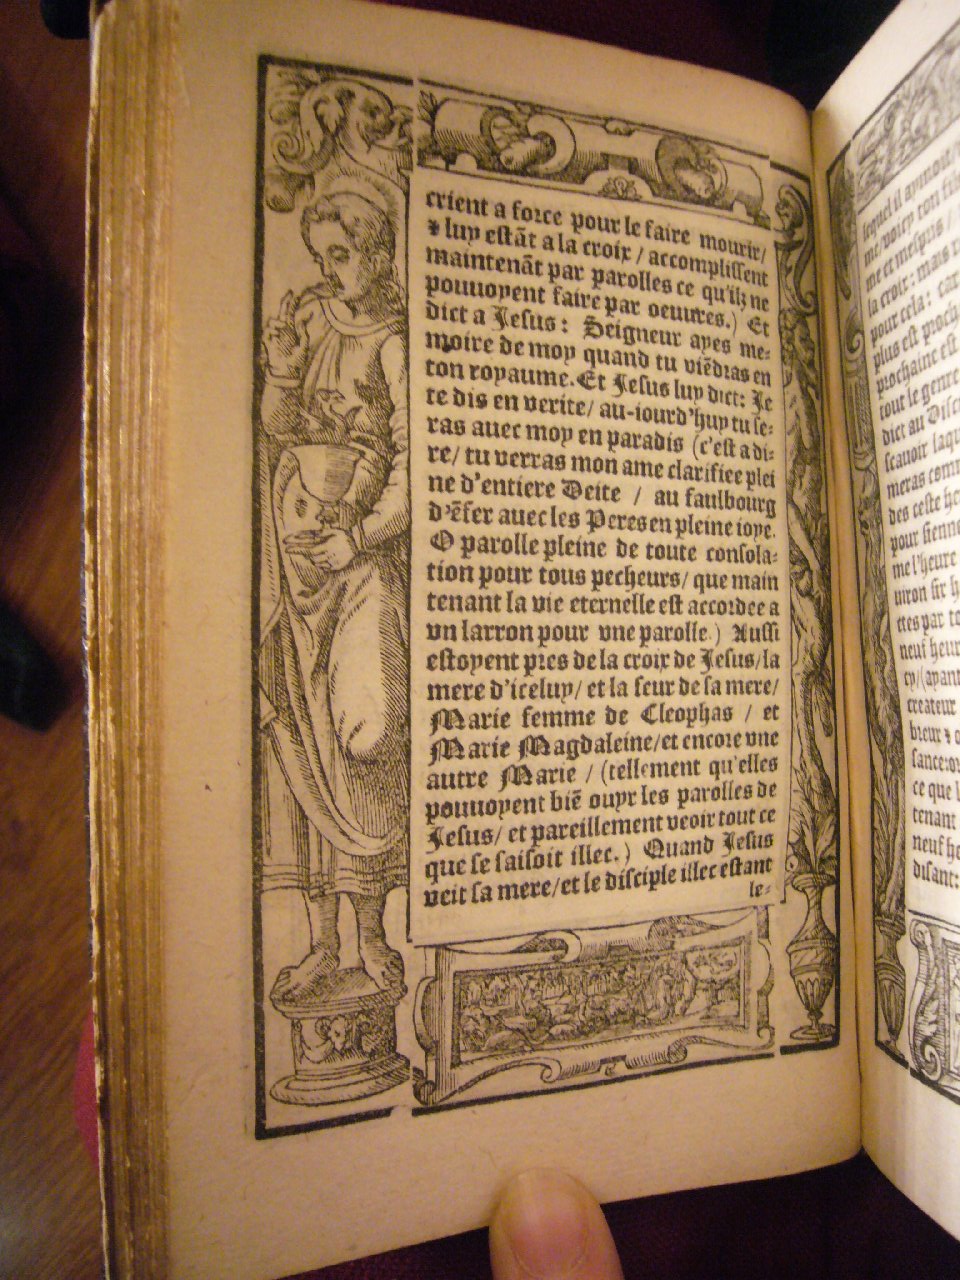 crient a force pour le faire mourir/
⁊ luy estāt a la croix / accomplissent
maintenāt par parolles ce qu'ilz ne
pouuoyent faire par oeuures.) Et
dict a Jesus: Seigneur ayes me-
moire de moy quand tu viēdras en
ton royaume. Et Jesus luy dict: Je
te dis en verite/ au-iourd'huy tu se-
ras auec moy en paradis (c'est a di-
re/ tu verras mon ame clarifiee plei
ne d'entiere Deite / au faulbourg
d'ēfer auec les Peres en pleine ioye.
O parolle pleine de toute consola-
tion pour tous pecheurs/ que main
tenant la vie eternelle est accordee a
vn larron pour vne parolle.) Aussi
estoyent pres de la croix de Jesus/ la
mere d'iceluy/ et la seur de sa mere/
Marie femme de Cleophas / et
Marie Magdaleine/ et encore vne
autre Marie / (tellement qu'elles
pouuoyent biē ouyr les parolles de
Jesus/ et pareillement veoir tout ce
que se faisoit illec.) Quand Jesus
veit sa mere/ et le disciple illec estant
le-
lequel il aymoit/
me/ voicy ton fils
la croix: mais
pour cela: car
plus est procu
prochaine est
tout le genre
dict au Disc
scauoir laqu
meras comm
des ceste he
pour sienne
me l'heure
uiron six h
etes par to
neuf heur
cy/ (ayant
createur
breur ⁊ o
sance: ou
ce que l
tenant
neuf he
disant: